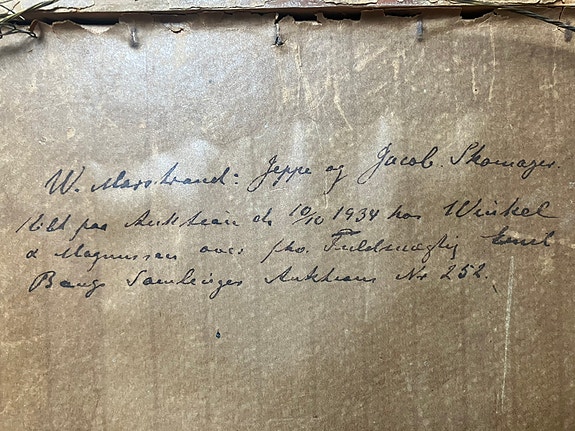 W. Marstrand: Jeppe og Jacob Skomager.
Kjøbt paa Auktion d. 10/10 1934 hos Winkel
& Magnussen over fhv. Fuldmægtig Emil
Bangs Samlinger Auktions Nr 252.